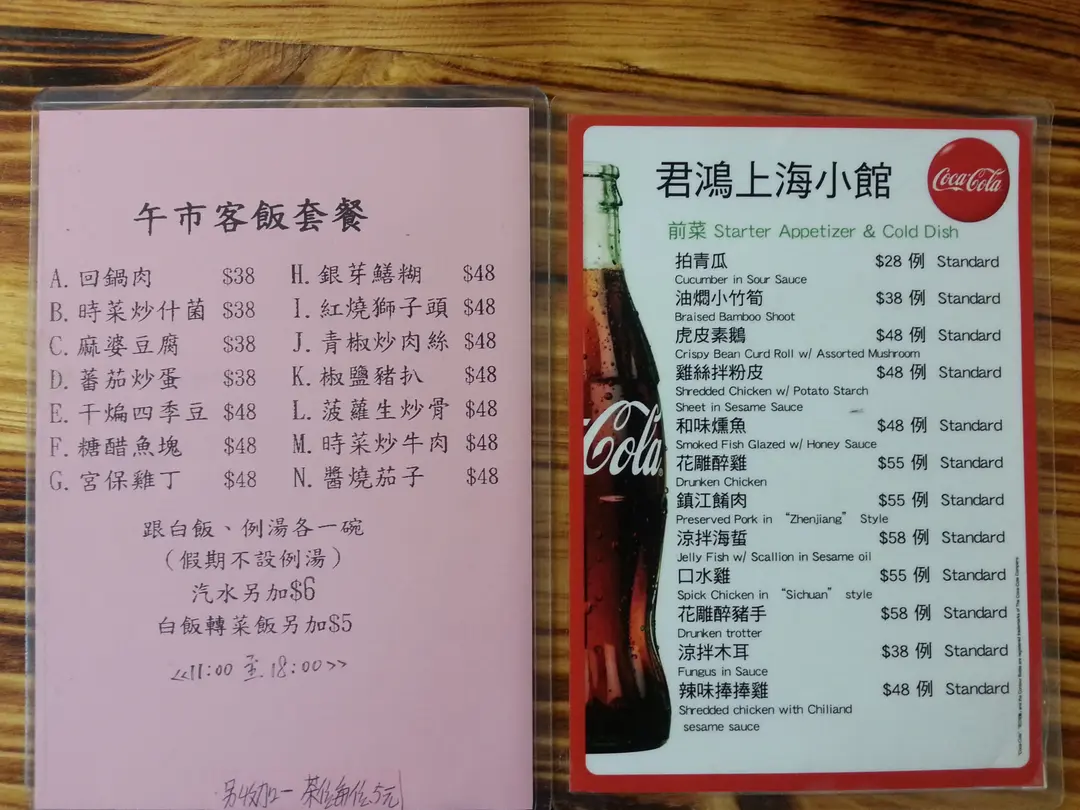 午市客飯套餐
A. 回鍋肉 $38
B. 時菜炒什菌 $38
C. 麻婆豆腐 $38
D. 蕃茄炒蛋 $38
E. 干煸四季豆 $48
F. 糖醋魚塊 $48
G. 宮保雞丁 $48
H. 銀芽鱔糊 $48
I. 紅燒獅子頭 $48
J. 青椒炒肉絲 $48
K. 椒鹽豬扒 $48
L. 菠蘿生炒骨 $48
M. 時菜炒牛肉 $48
N. 醬燒茄子 $48
跟白飯、例湯各一碗
(假期不設例湯)
汽水另加$6
白飯轉菜飯另加$5
<<11:00 至 18:00>>
另收加一 茶位每位5元
君鴻上海小館
Coca-Cola
前菜 Starter Appetizer & Cold Dish
拍青瓜 $28 例 Standard
Cucumber in Sour Sauce
油燜小竹筍 $38 例 Standard
Braised Bamboo Shoot
虎皮素鵝 $48 例 Standard
Crispy Bean Curd Roll w/ Assorted Mushroom
雞絲拌粉皮 $48 例 Standard
Shredded Chicken w/ Potato Starch
Sheet in Sesame Sauce
和味燻魚 $48 例 Standard
Smoked Fish Glazed w/ Honey Sauce
花雕醉雞 $55 例 Standard
Drunken Chicken
鎮江餚肉 $55 例 Standard
Preserved Pork in “Zhenjiang” Style
涼拌海蜇 $58 例 Standard
Jelly Fish w/ Scallion in Sesame oil
口水雞 $55 例 Standard
Spick Chicken in “Sichuan” style
花雕醉豬手 $58 例 Standard
Drunken trotter
涼拌木耳 $38 例 Standard
Fungus in Sauce
辣味捧捧雞 $48 例 Standard
Shredded chicken with Chiliand
sesame sauce
Cola